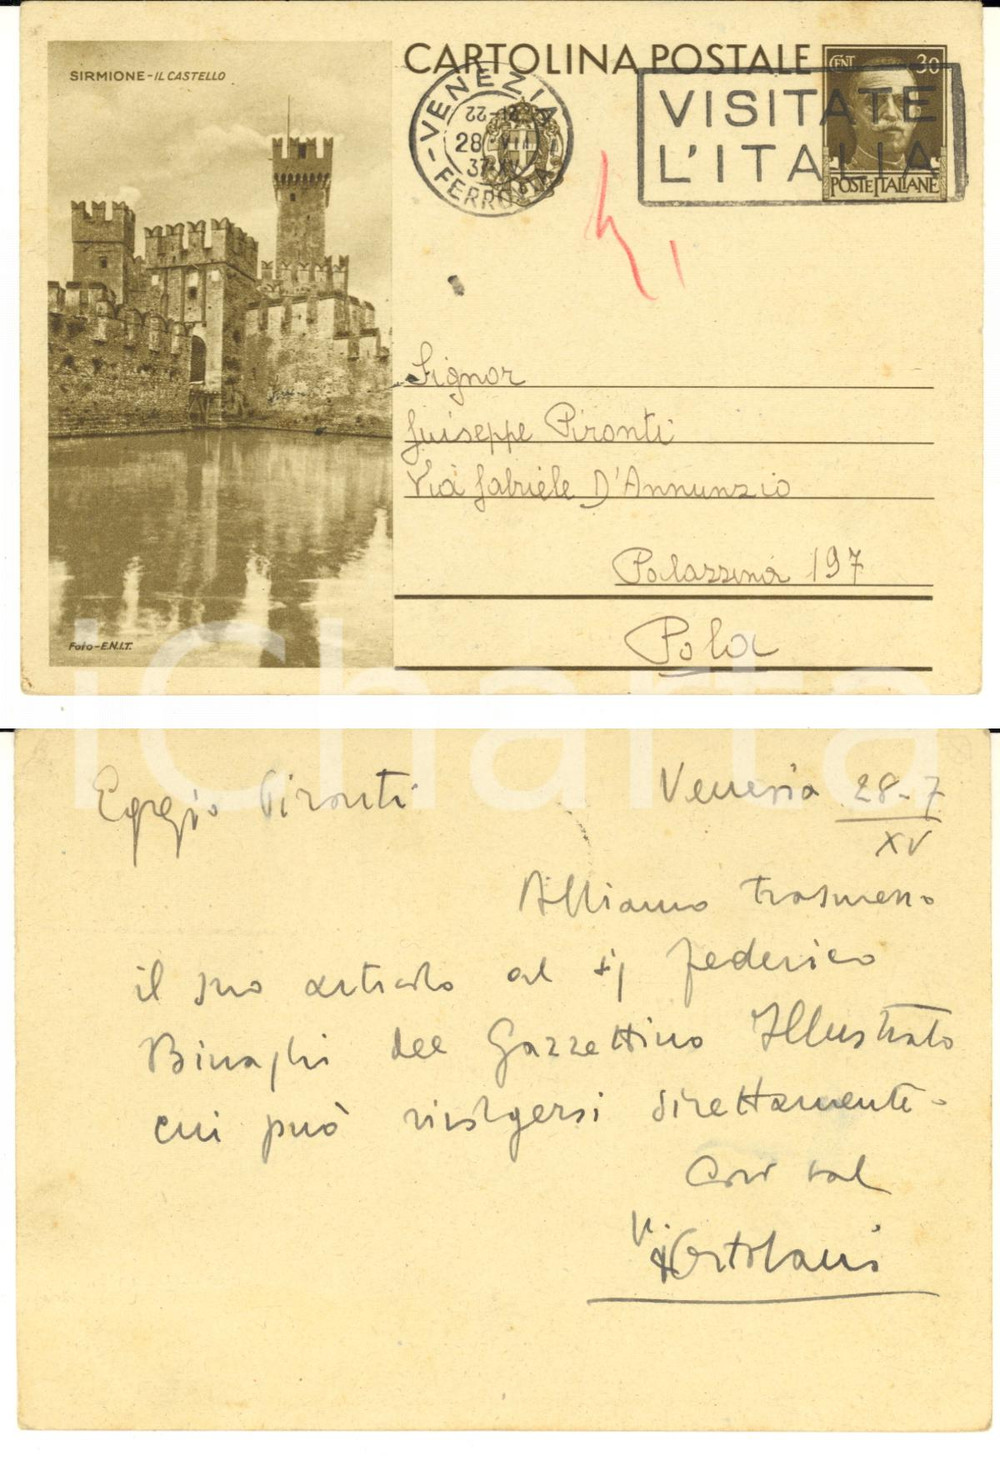 SIRMIONE - IL CASTELLO
CARTOLINA POSTALE
CENT 30
POSTE ITALIANE
VENEZIA
22-
28 VII
37 XV
FERROVIA
VISITATE
L'ITALIA
Signor
Giuseppe Pironti
Via Gabriele D'Annunzio
Palazzina 197
Pola
Foto - E.N.I.T.
iCharta
Egregio Pironti
Venezia 28-7
XV
Abbiamo trasmesso
il suo articolo al sig Federico
Binaghi del Gazzettino Illustrato
cui può rivolgersi direttamente-
Cor sal
Ortolani